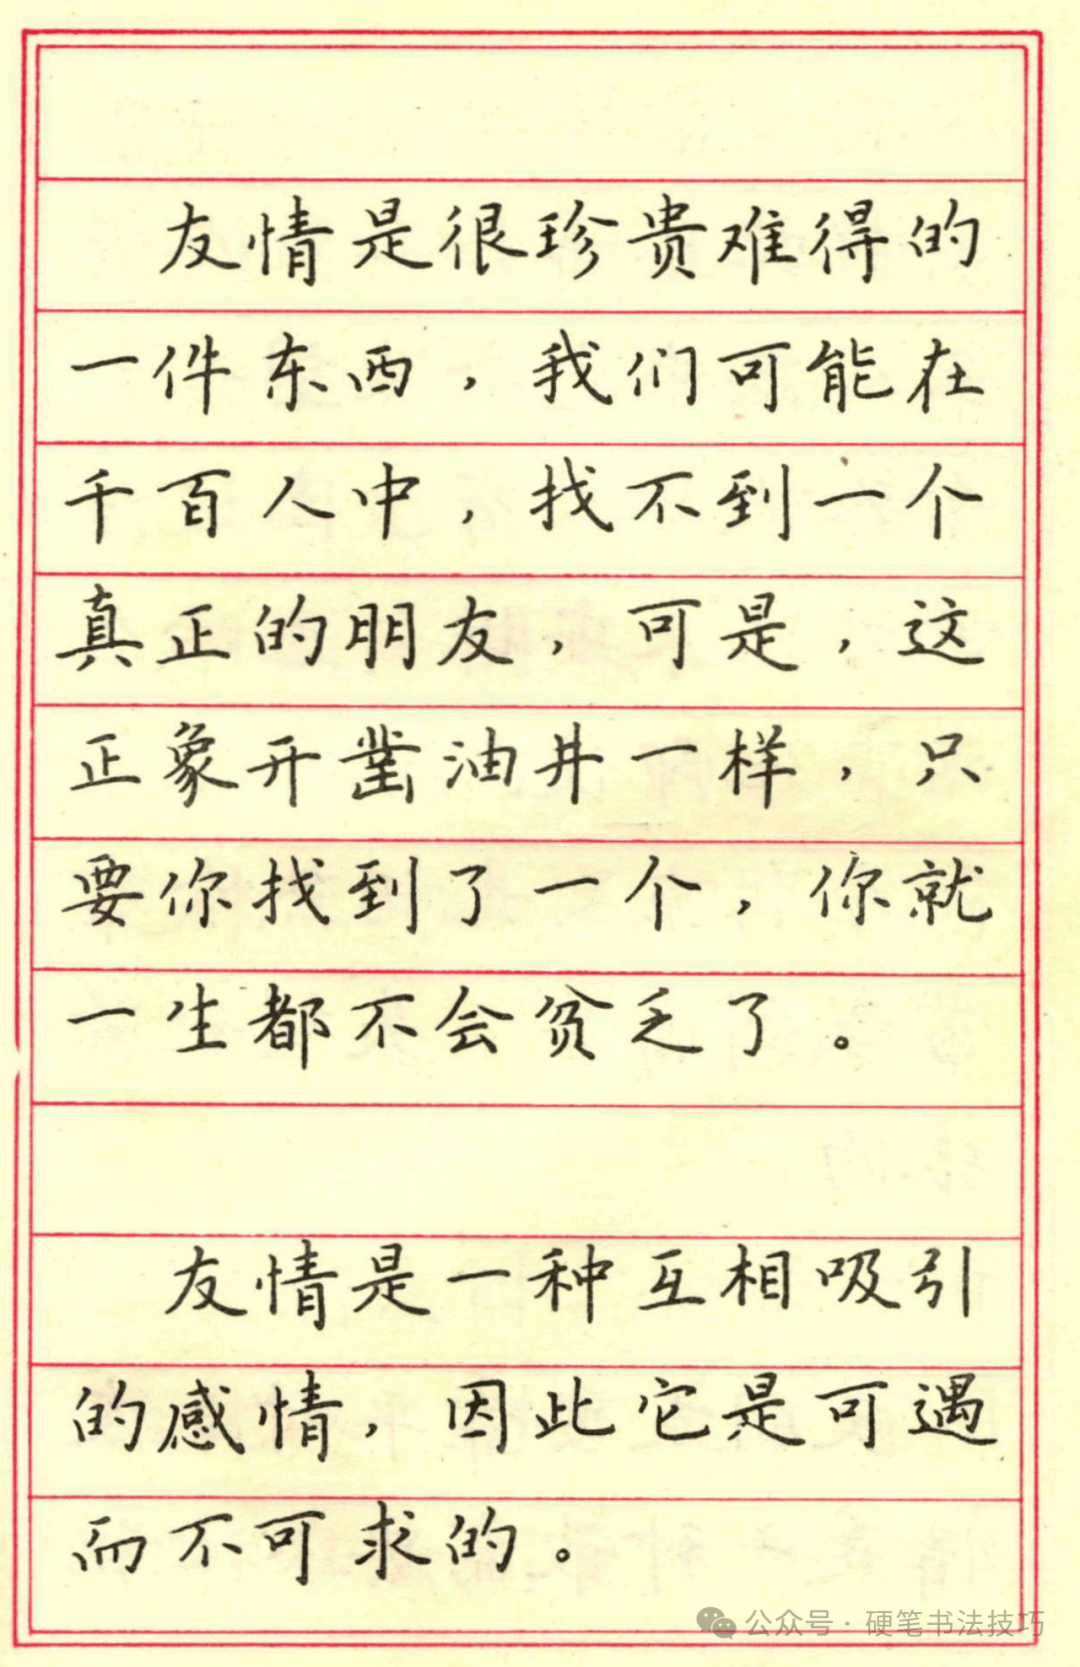 友情是很珍贵难得的
一件东西，我们可能在
千百人中，找不到一个
真正的朋友，可是，这
正象开凿油井一样，只
要你找到了一个，你就
一生都不会贫乏了。
友情是一种互相吸引
的感情，因此它是可遇
而不可求的。
公众号·硬笔书法技巧